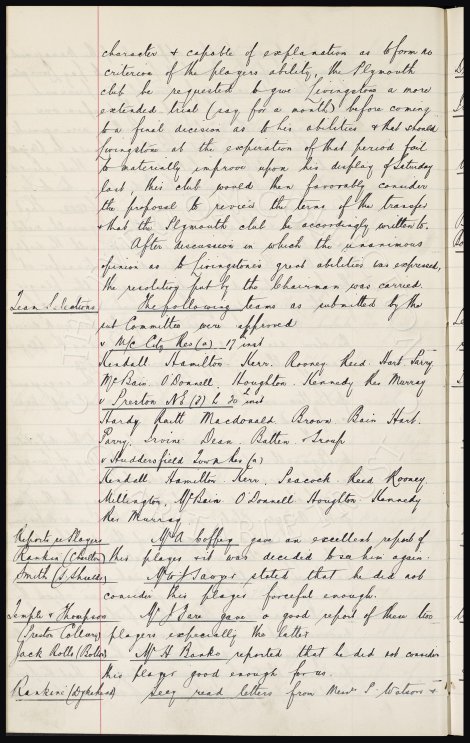 character & capable of explanation as to form no
criterion of the players ability, the Plymouth
club be requested to give Livingstone a more
extended trial (say for a month) before coming
to a final decision as to his abilities & that should
Livingstone at the expiration of that period fail
to materially improve upon his display of Saturday
last, this club would then favorably consider
the proposal to revise the terms of the transfer
& that the Plymouth club be accordingly written to.
After discussion in which the unanimous
opinion as to Livingstone's great abilities was expressed,
the resolution put by the Chairman was carried.
Team Selections The following teams as submitted by the
sub Committee were approved
v M/c City Res (a) 17th inst
Kendall. Hamilton. Kerr. Rooney. Reed. Hart. Parry
McBain. O'Donnell. Houghton. Kennedy Res Murray
v Preston N.E. (3) h 20th inst
Hardy Raitt Macdonald. Brown. Bain Hart.
Parry. Irvine Dean. Batten. & Troup
v Huddersfield Town Res (a)
Kendall. Hamilton. Kerr. Peacock. Reed Rooney.
Millington, McBain O'Donnell Houghton. Kennedy
Res Murray
Reports re Players Mr A Coffey gave an excellent report of
Rankin (Charlton) this player & it was decided to see him again.
Smith (S. Shields) Mr W J Sawyer stated that he did not
consider this player forceful enough.
Temple & Thompson Mr J Fare gave a good report of these two
(Preston Colliery) players especially the latter
Jack Rolls (Bolton) Mr H Banks reported that he did not consider
this player good enough for us.
Rankine (Dykehead) Secy read letters from Messrs S. Watson &